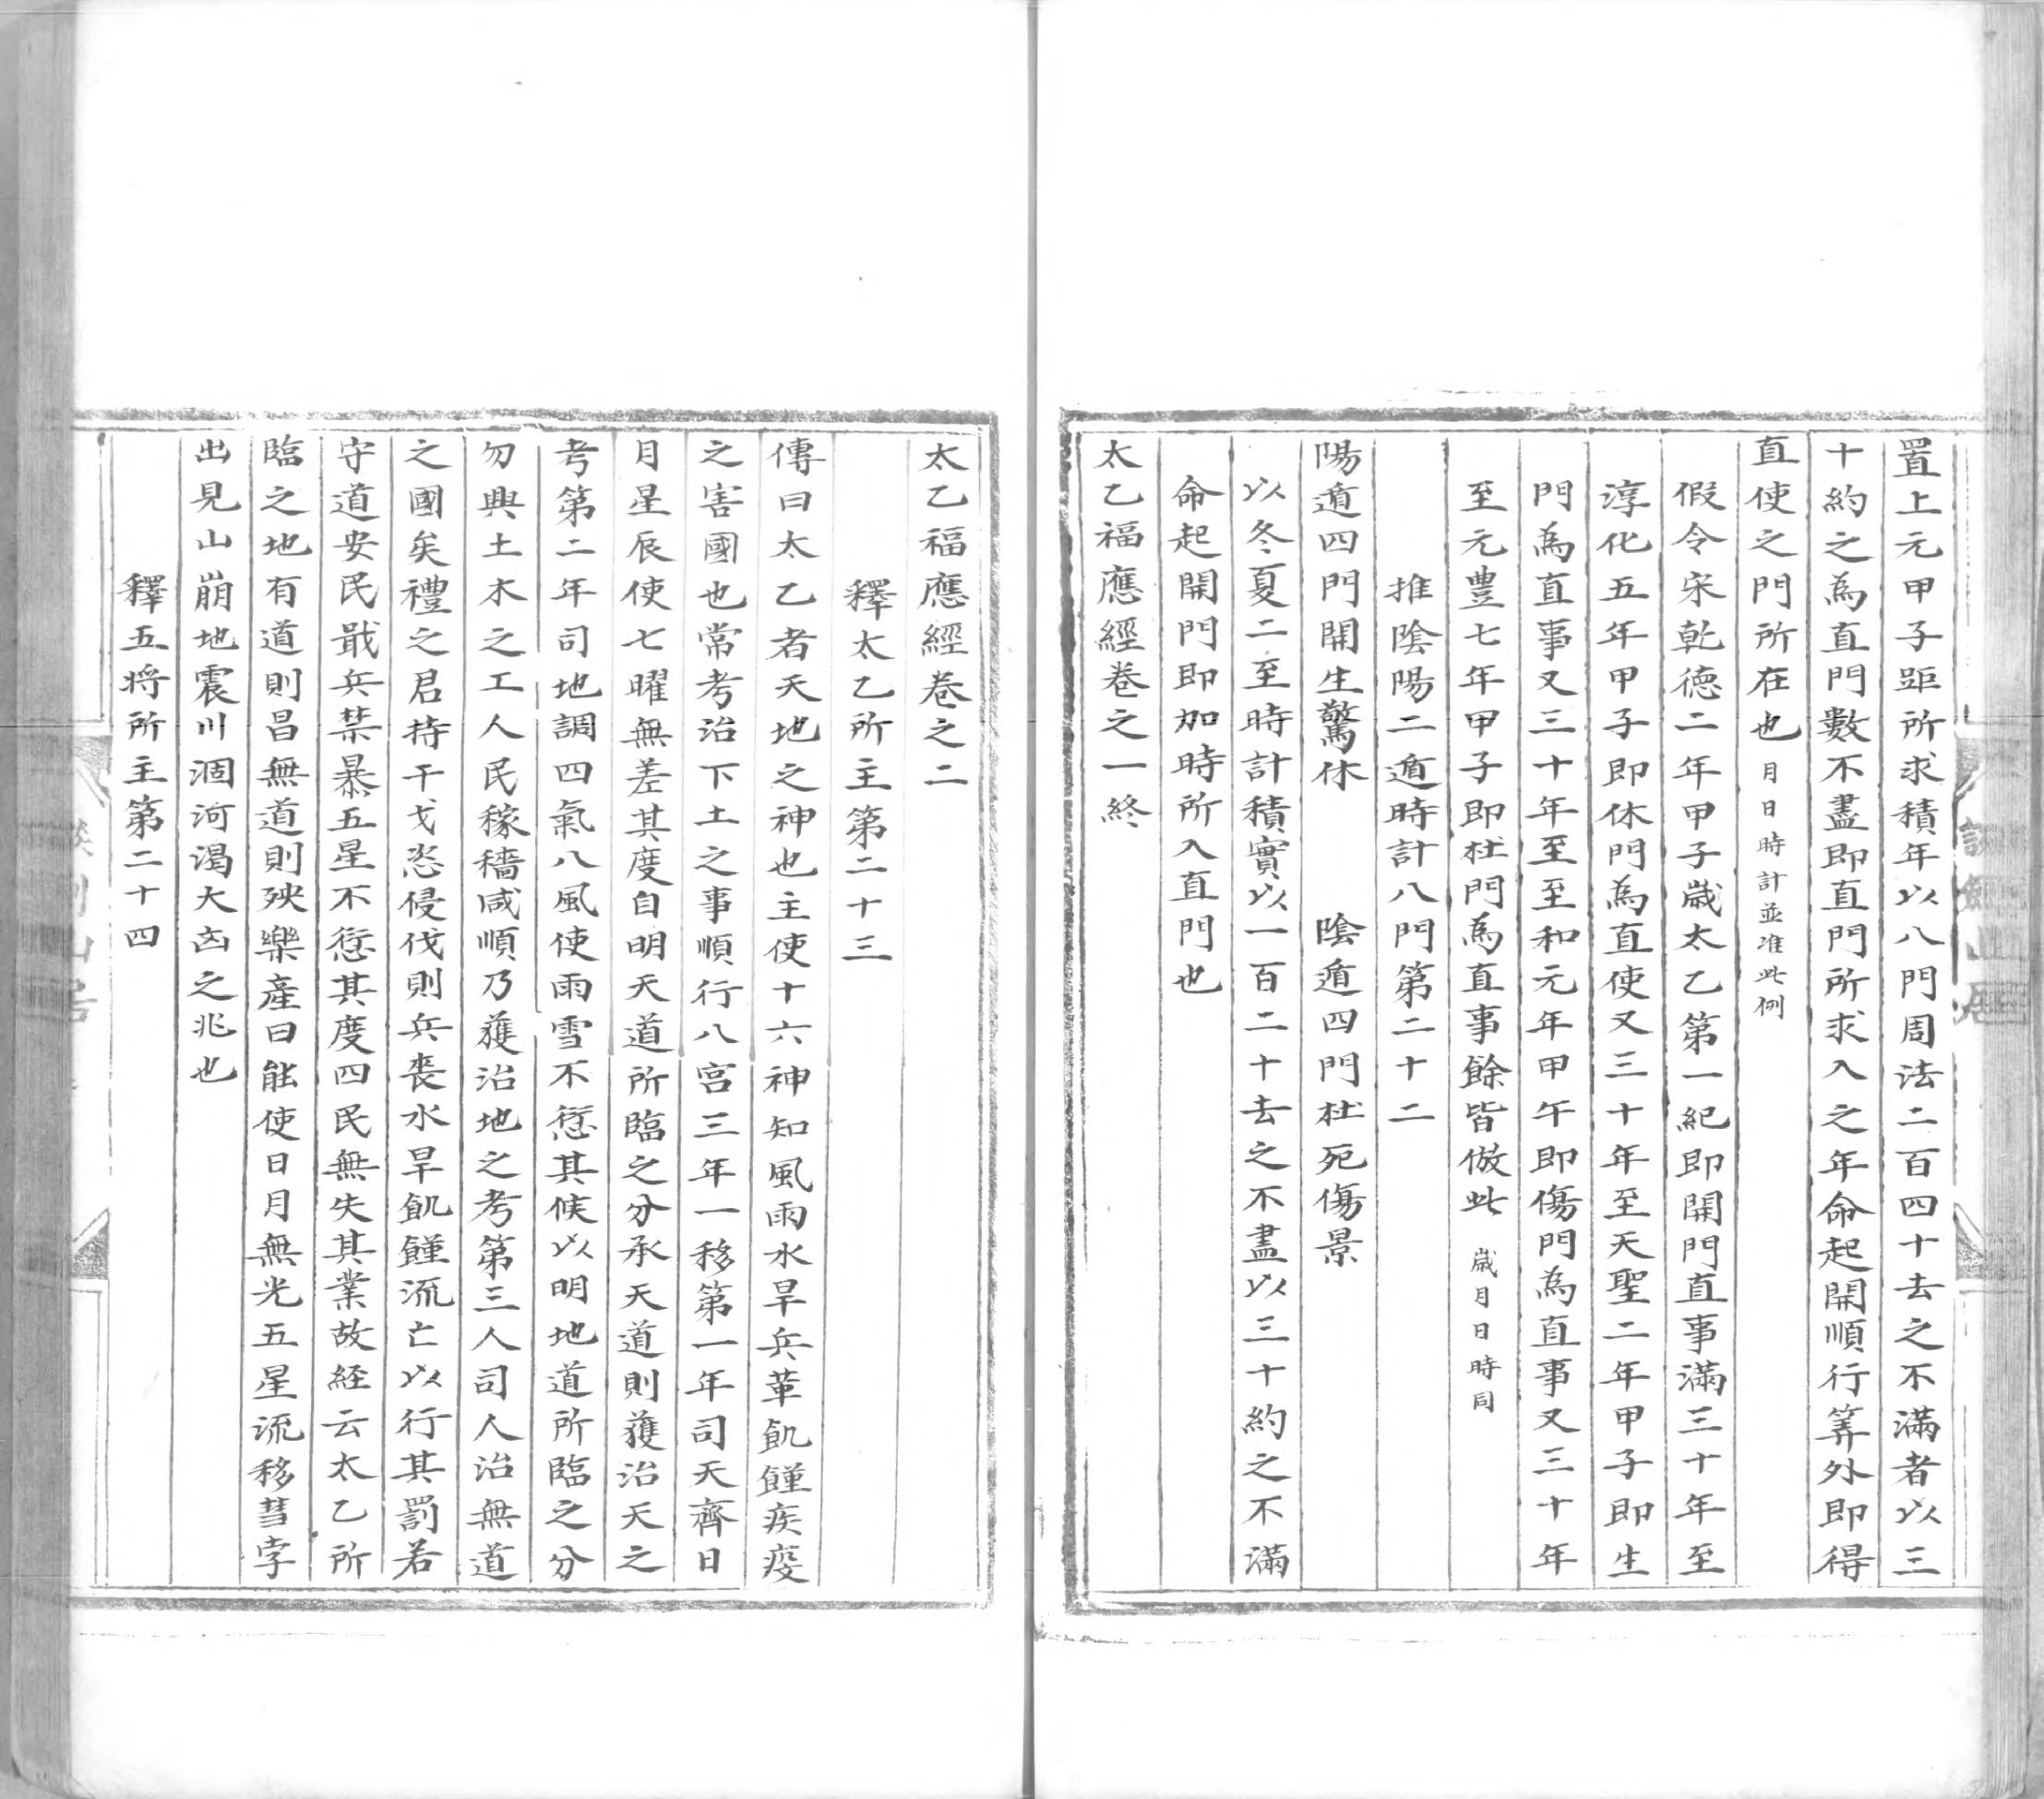 置上元甲子距所求積年以八門周法二百四十去之不滿者以三
十約之為直門數不盡即直門所求入之年命起開順行筭外即得
直使之門所在也月日時計並准此例
假令宋乾德二年甲子歲太乙第一紀即開門直事滿三十年至
淳化五年甲子即休門為直使又三十年至天聖二年甲子即生
門為直事又三十年至至和元年甲午即傷門為直事又三十年
至元豊七年甲子即杜門為直事餘皆倣此歲月日時同
推陰陽二遁時計八門第二十二
陽遁四門開生驚休 陰遁四門杜死傷景
以冬夏二至時計積實以一百二十去之不盡以三十約之不滿
命起開門即加時所入直門也
太乙福應經卷之一終
太乙福應經卷之二
釋太乙所主第二十三
傳曰太乙者天地之神也主使十六神知風雨水旱兵革飢饉疾疫
之害國也常考治下土之事順行八宮三年一移第一年司天齊日
月星辰使七曜無差其度自明天道所臨之分承天道則獲治天之
考第二年司地調四氣八風使雨雪不愆其候以明地道所臨之分
勿興土木之工人民稼穡咸順乃獲治地之考第三人司人治無道
之國矣禮之君持干戈恣侵伐則兵喪水旱飢饉流亡以行其罰若
守道安民戢兵禁暴五星不愆其度四民無失其業故経云太乙所
臨之地有道則昌無道則殃樂產曰能使日月無光五星流移彗孛
出見山崩地震川涸河渴大凶之兆也
釋五将所主第二十四